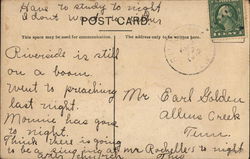 Have to study to night
I dont
POST CARD
This space may be used for communication.
The address only to be written here.
Riverside is still
on a boom.
Went to preaching
last night.
Monnie has gone
to night.
Think there is going
to be a sing ing at Mr Rochelle's to night
Mr Earl Golden
Allens Creek
Tenn.